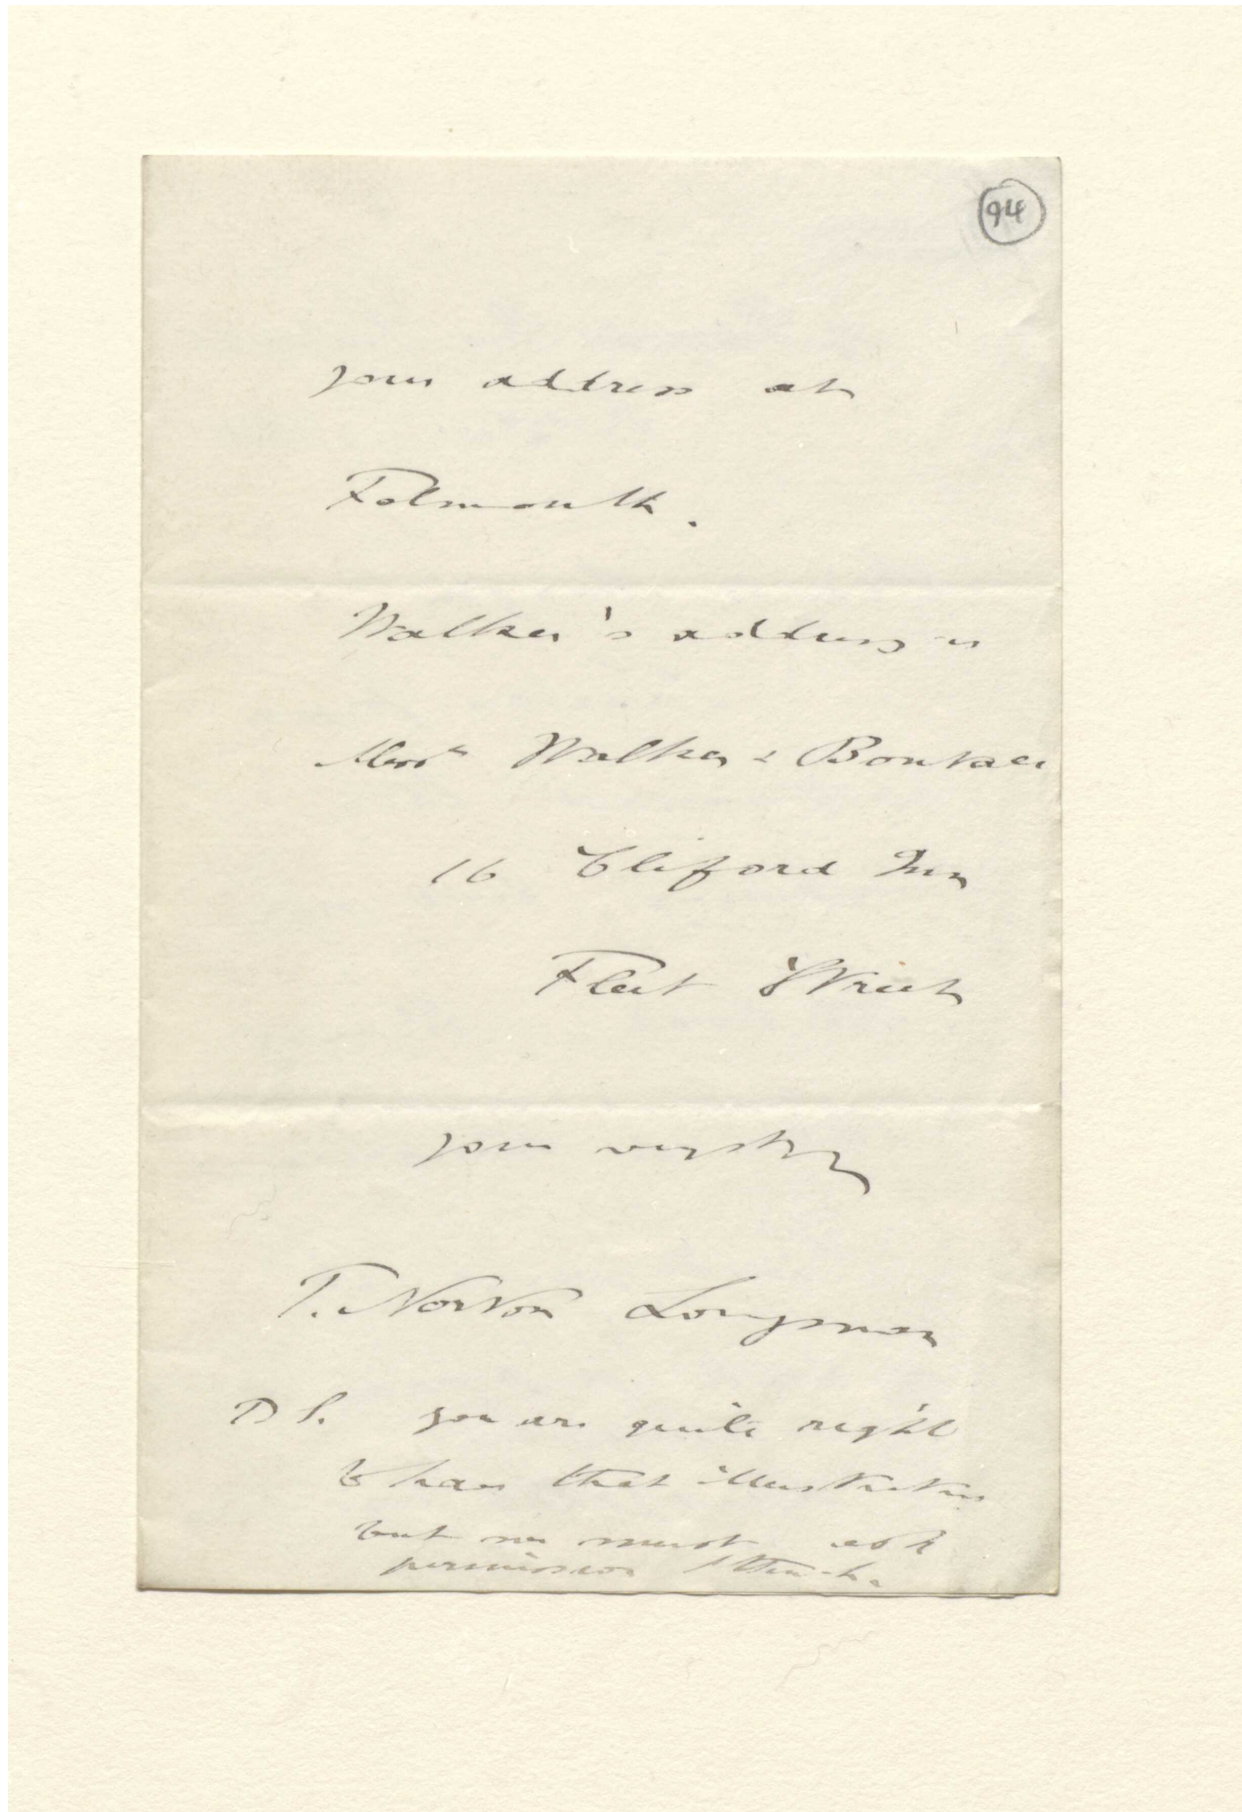 94
your address at
Falmouth.
Walker's address is
Messrs Walker & Boutall
16 Cliford Inn
Fleet Street
yours very truly
T. Norton Longman
P S. you are quite right
to have that illustration
but we must ask
permission